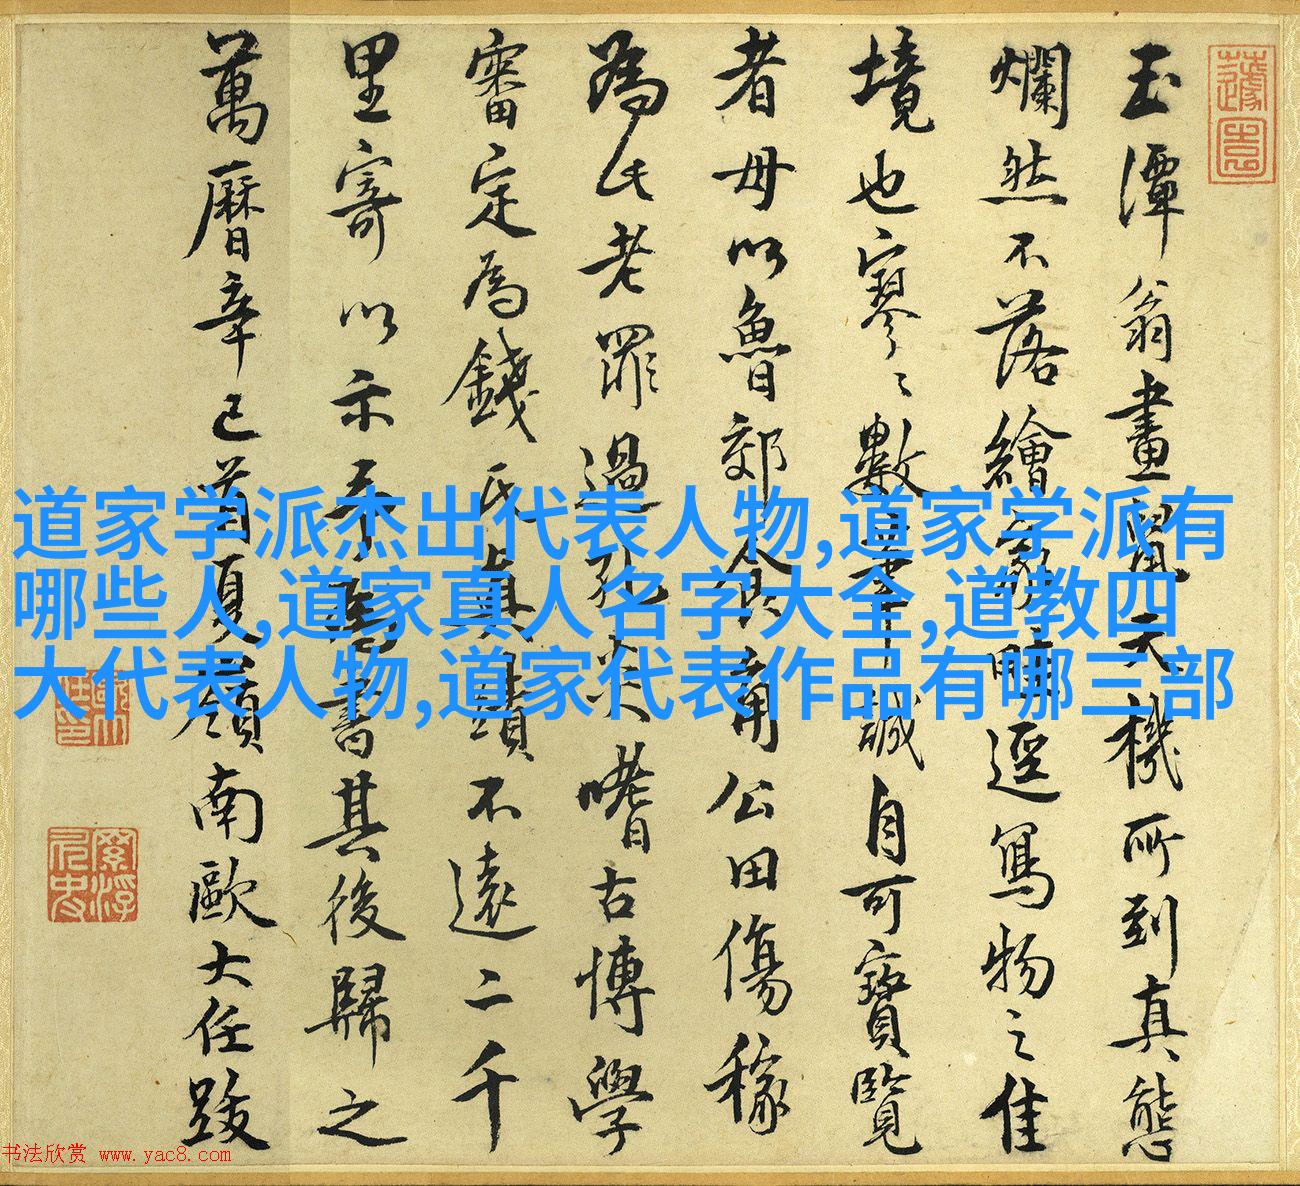 玉潭翁畫鼠天機所到真態
爛然不落繪
逕寫物之佳
境也寥々數
誠自可寶覽
者毋以魯郊
公田傷稼
為氏老罪過
嗜古博學
審定為錢氏真蹟不遠二千
里寄以示
書其後歸之
萬曆辛巳首夏嶺南歐大任跋
道家学派杰出代表人物,道家学派有
哪些人,道家真人名字大全,道教四
大代表人物,道家代表作品有哪三部
书法欣赏 www.yac8.com